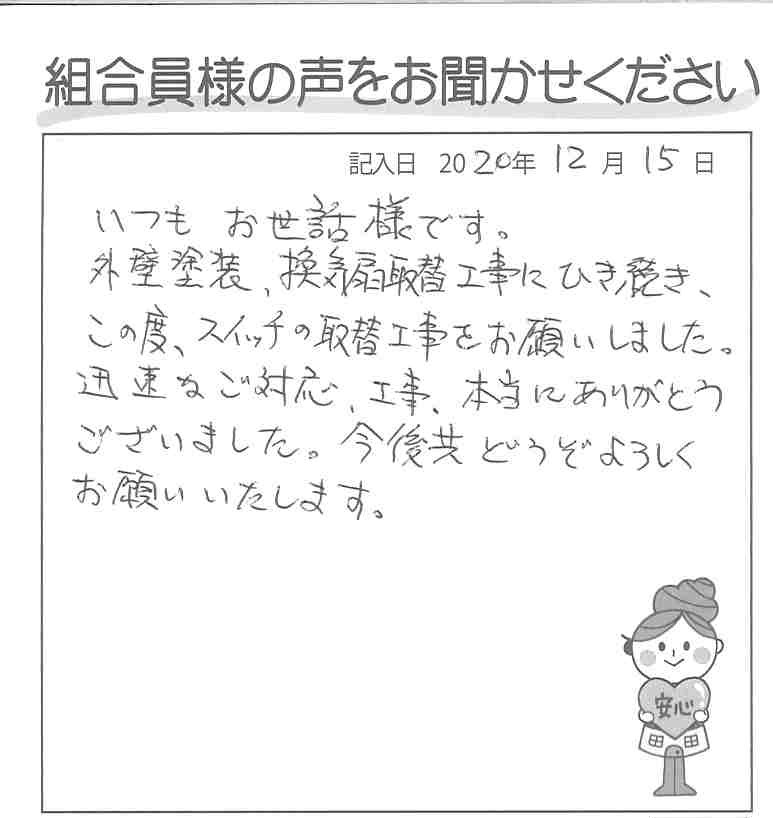 組合員様の声をお聞かせください
記入日 2020年 12月 15日
いつも お世話様です。
外壁塗装、換気扇取替工事にひき続き、
この度、スイッチの取替工事をお願いしました。
迅速なご対応、工事、本当にありがとう
ございました。今後共どうぞよろしく
お願いいたします。
安心